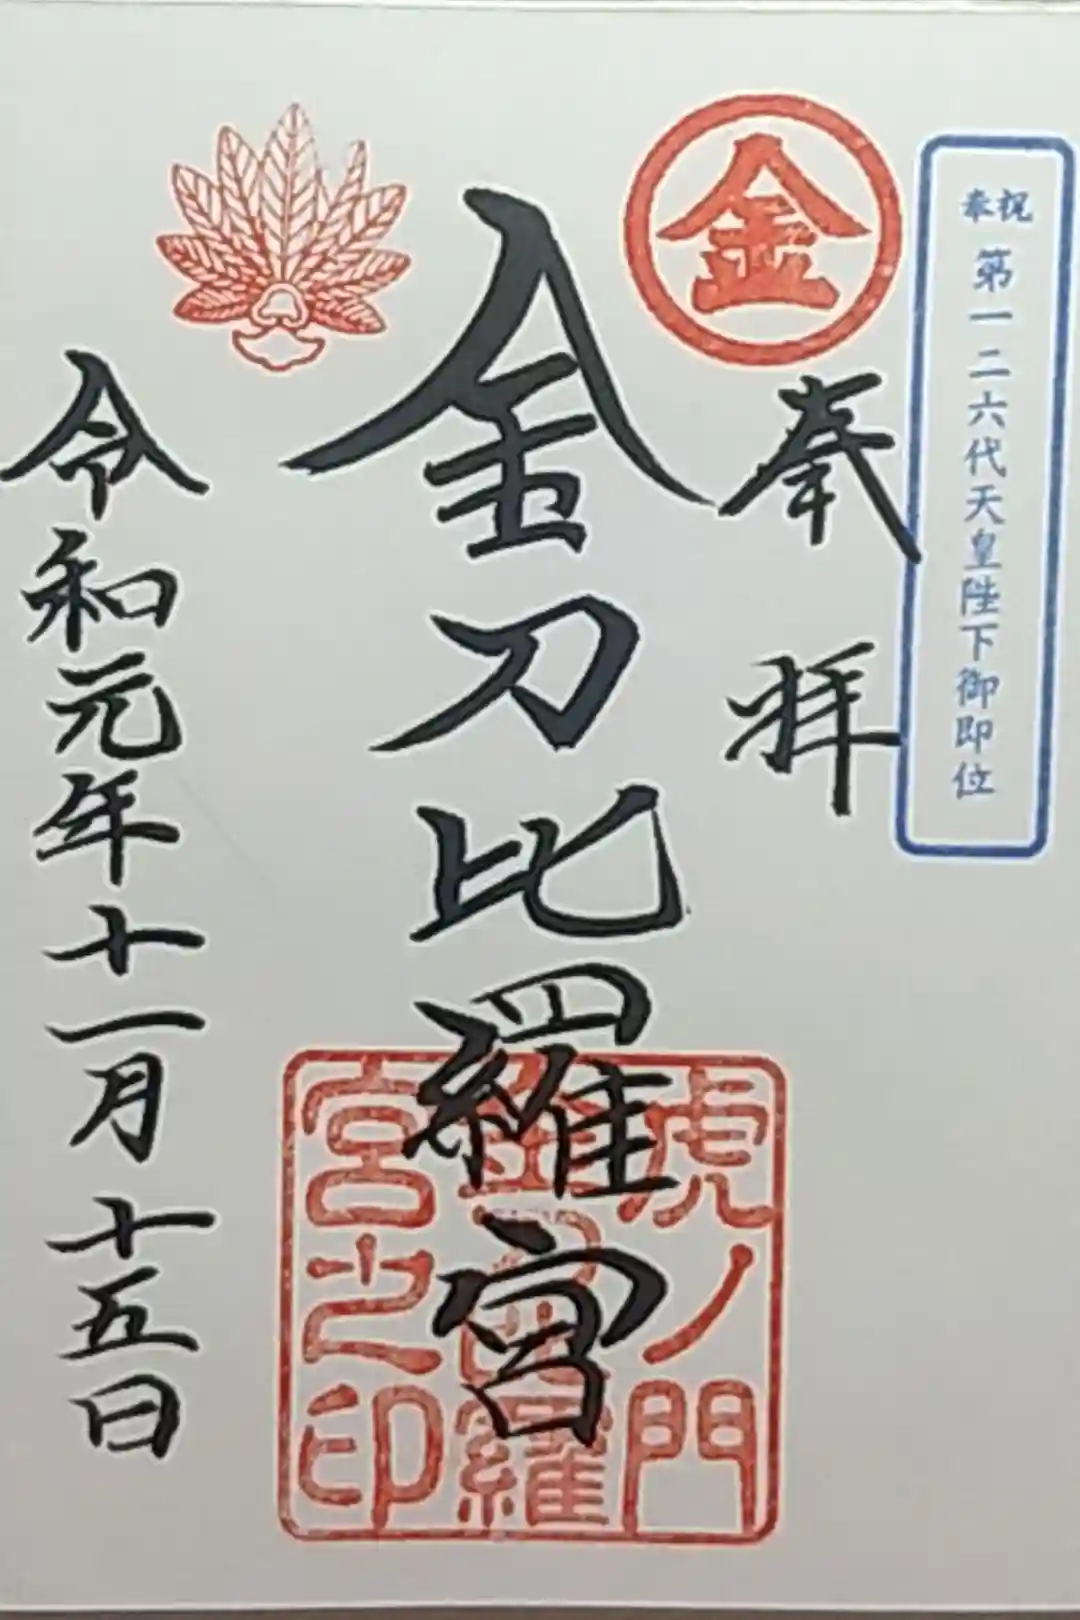 奉祝 第一二六代天皇陛下御即位
金
奉拝
金刀比羅宮
令和元年十一月十五日
虎ノ門
金刀比羅
宮之印